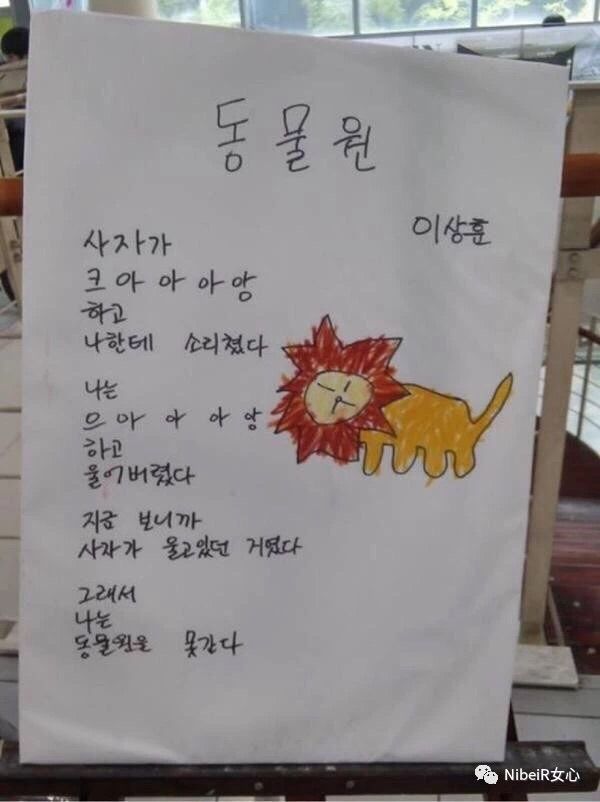 동물원
이상훈
사자가
크아아아앙
하고
나한테 소리쳤다
나는
으아아아앙
하고
울어버렸다
지금 보니까
사자가 울고있던 거였다
그래서
나는
동물원을 못간다
NibeiR女心